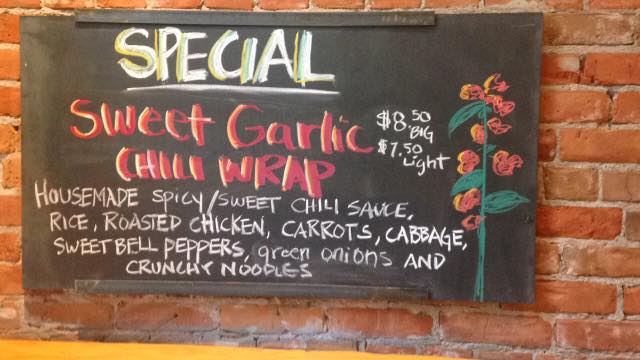 SPECIAL
Sweet Garlic
CHILI WRAP
$8.50
BIG
$7.50
Light
HOUSEMADE SPICY/SWEET CHILI SAUCE,
RICE, ROASTED CHICKEN, CARROTS, CABBAGE,
SWEET BELL PEPPERS, green onions AND
CRUNCHY NOODLES